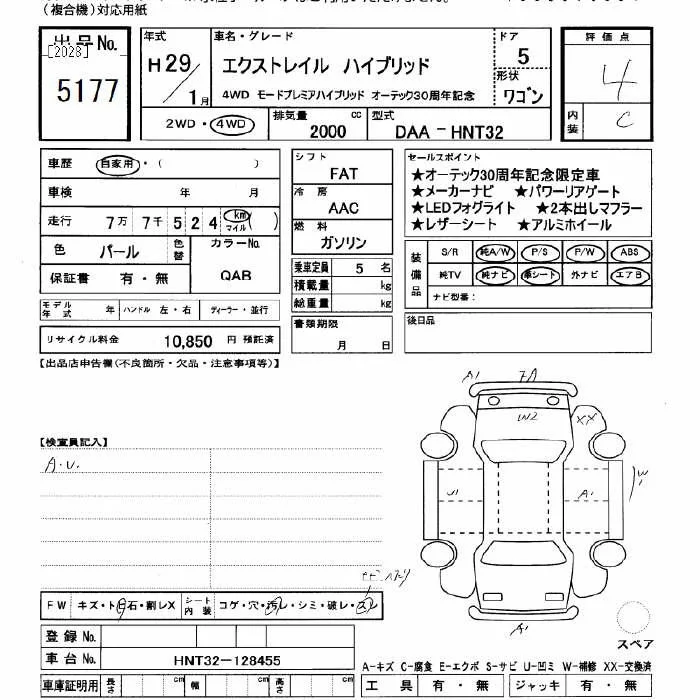 (複合機)対応用紙
出品No.
[2028]
5177
年式
H29/1月
車名・グレード
エクストレイル ハイブリッド
4WD モードプレミアハイブリッド オーテック30周年記念
ドア
5
形状
ワゴン
評価点
4
内装
C
2WD・4WD
排気量
2000 cc
型式
DAA-HNT32
車歴 自家用・( )
車検 年 月
走行 7万 7千 5 2 4 km マイル ( )
色 パール 色替
カラーNo.
QAB
保証書 有・無
モデル年式 年 ハンドル 左・右 ディーラー・並行
リサイクル料金 10,850 円 預託済
シフト
FAT
冷房
AAC
燃料
ガソリン
乗車定員 5 名
積載量 kg
総重量 kg
書類期限
月 日
セールスポイント
★オーテック30周年記念限定車
★メーカーナビ ★パワーリアゲート
★LEDフォグライト ★2本出しマフラー
★レザーシート ★アルミホイール
装備品
S/R 純A/W P/S P/W ABS
純TV 純ナビ 革シート 外ナビ エアB
ナビ型番:
後日品
【出品店申告欄(不良箇所・欠品・注意事項等)】
【検査員記入】
A.U.
A1
W2
XX
U1
A1
W
A1
FW キズ・トビ石・割レX シート内装 コゲ・穴・汚レ・シミ・破レ・スレ
登録No.
車台No. HNT32-128455
車庫証明用 長さ cm 幅 cm 高さ cm
スペア
A-キズ C-腐食 E-エクボ S-サビ U-凹ミ W-補修 XX-交換済
工具 有・無 ジャッキ 有・無